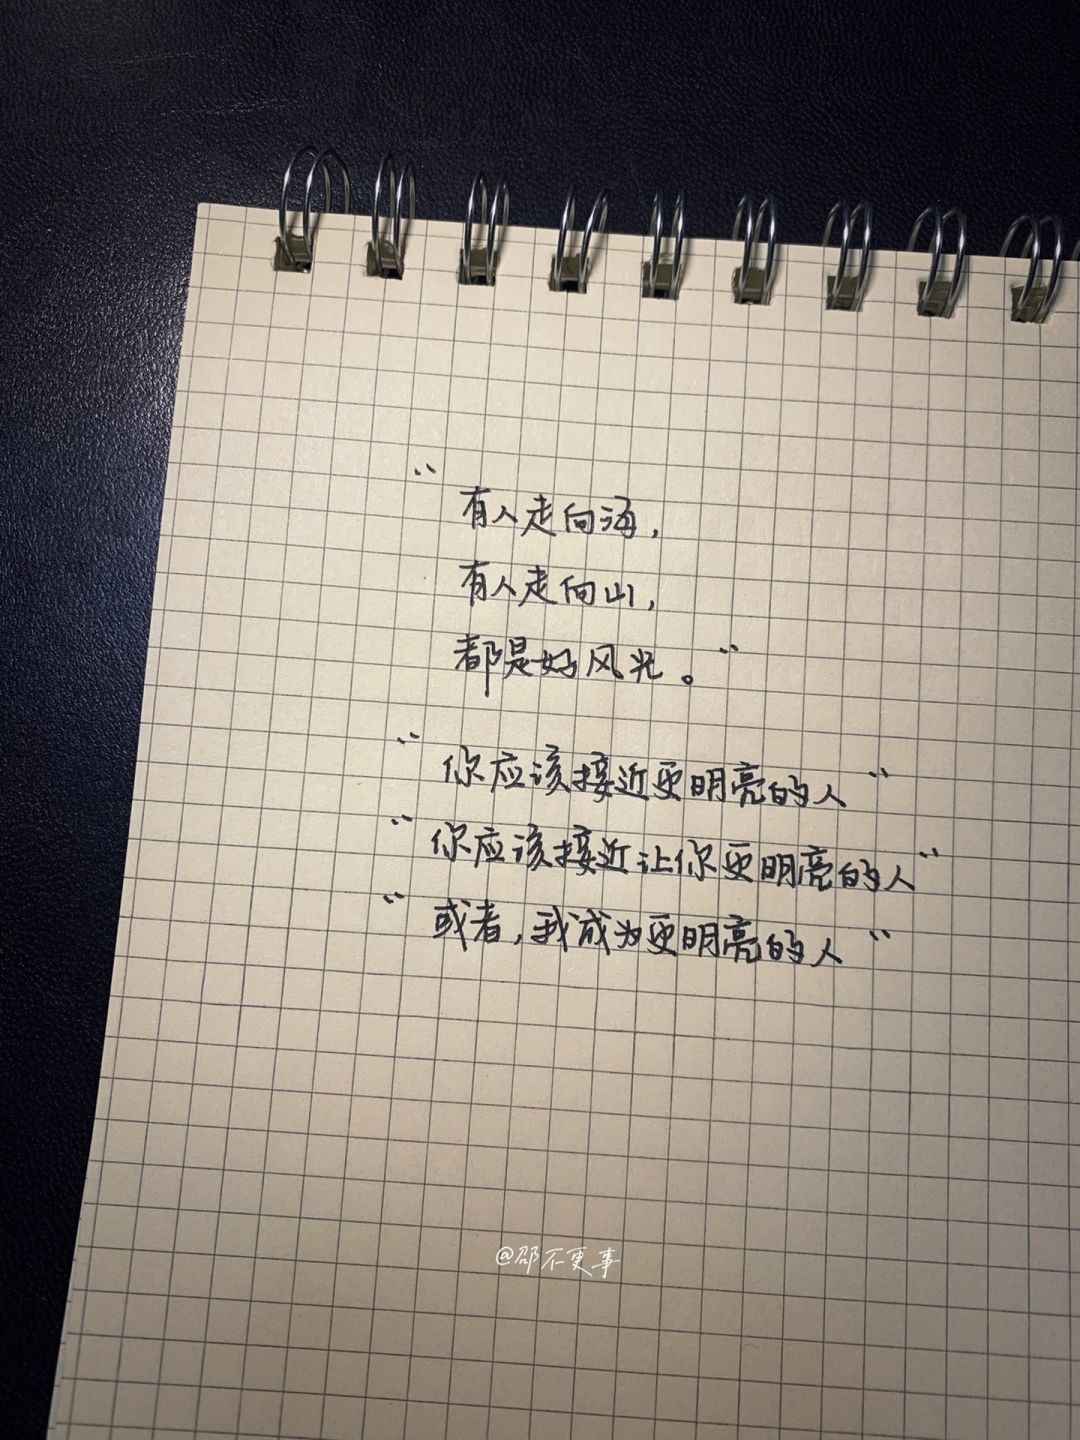 “有人走向海，
有人走向山，
都是好风光。”
“你应该接近更明亮的人”
“你应该接近让你更明亮的人”
“或者，我成为更明亮的人”
@邵不更事